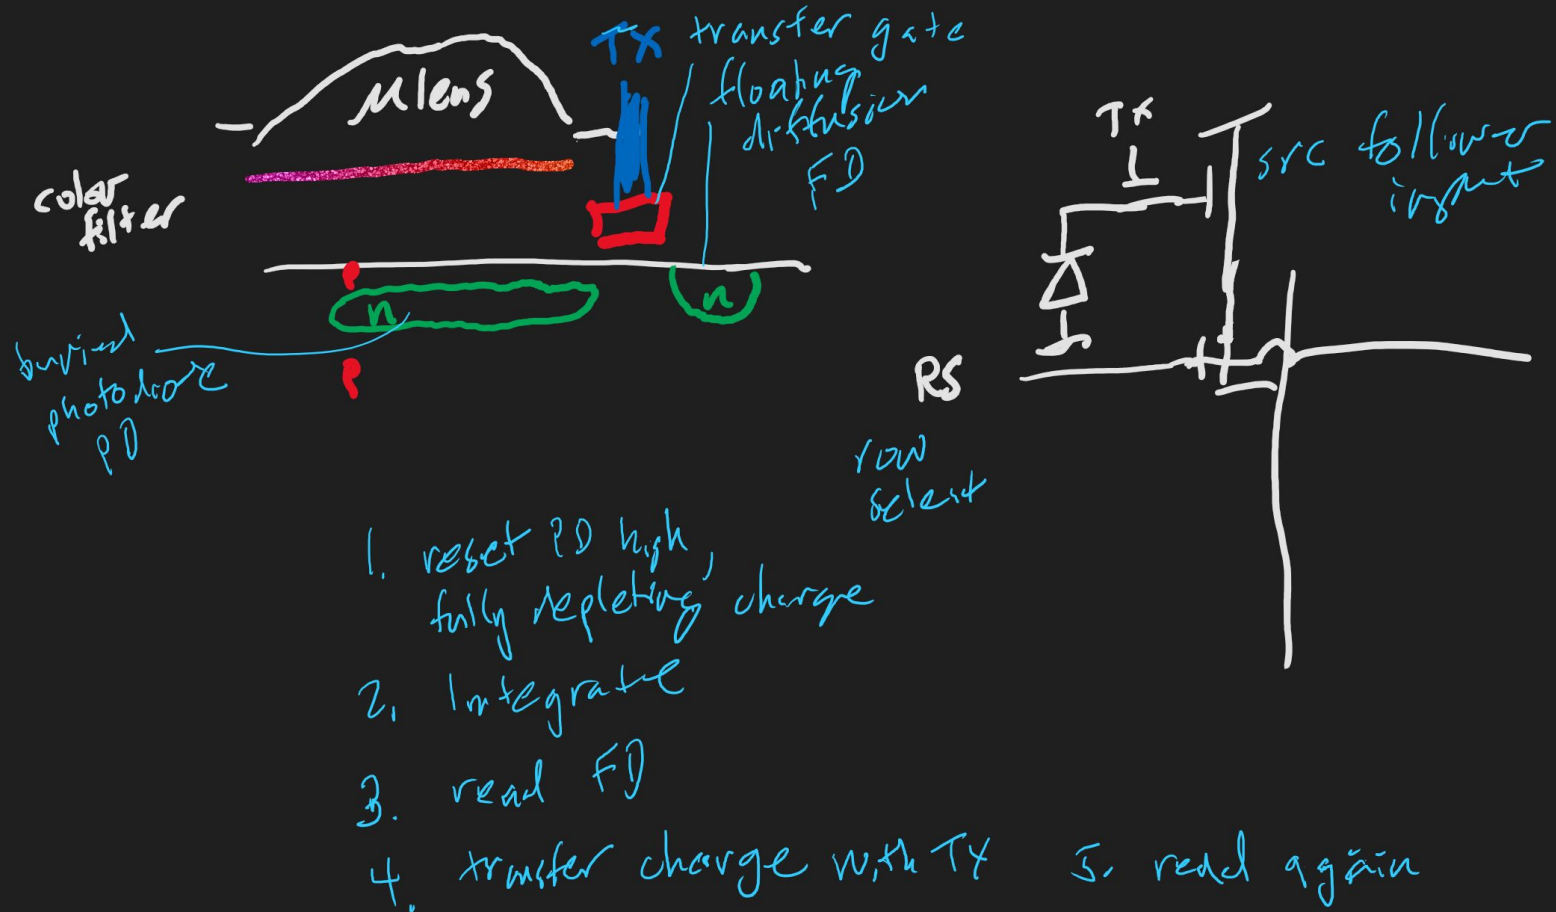 μlens
TX
transfer gate
floating
diffusion
FD
color
filter
P
n
n
P
buried
photodiode
PD
Tx
src follower
input
RS
row
select
1. reset PD high,
fully depleting charge
2. Integrate
3. read FD
4. transfer charge with TX
5. read again